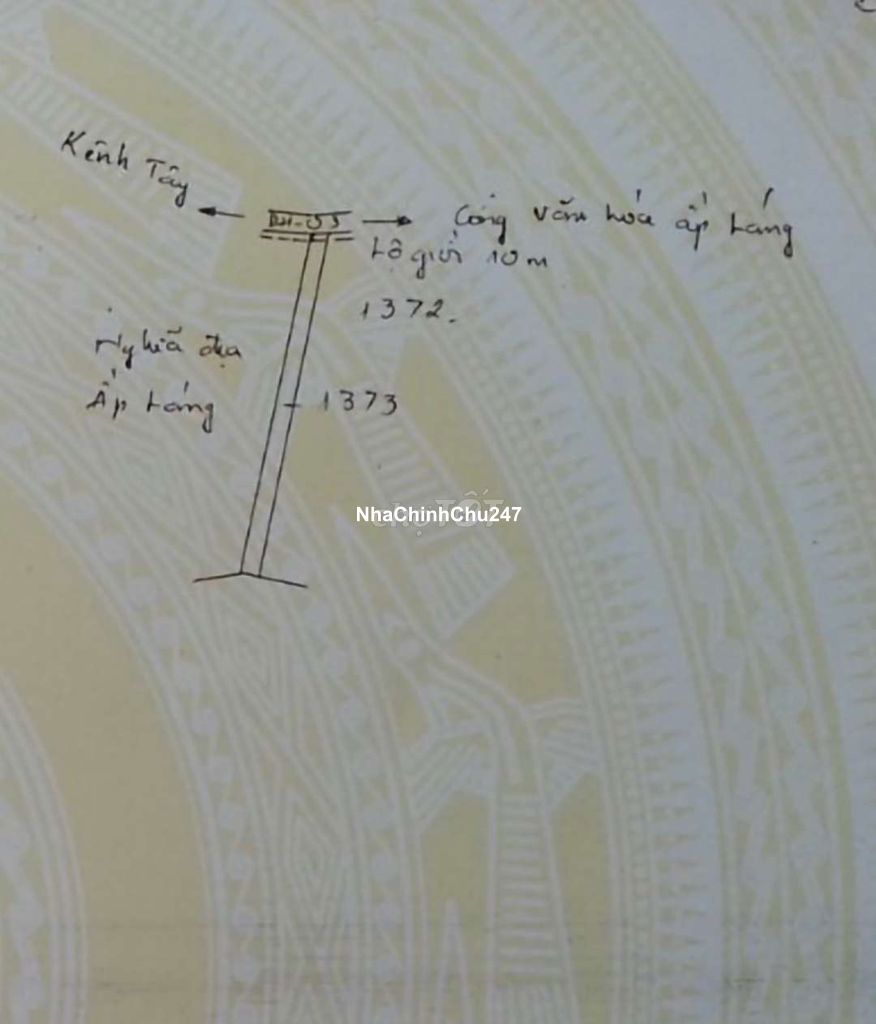 Kênh Tây
ĐH-05
Cổng văn hóa ấp táng
Lộ giới 10m
1372.
Nghĩa địa
Ấp táng
1373
NhaChinhChu247